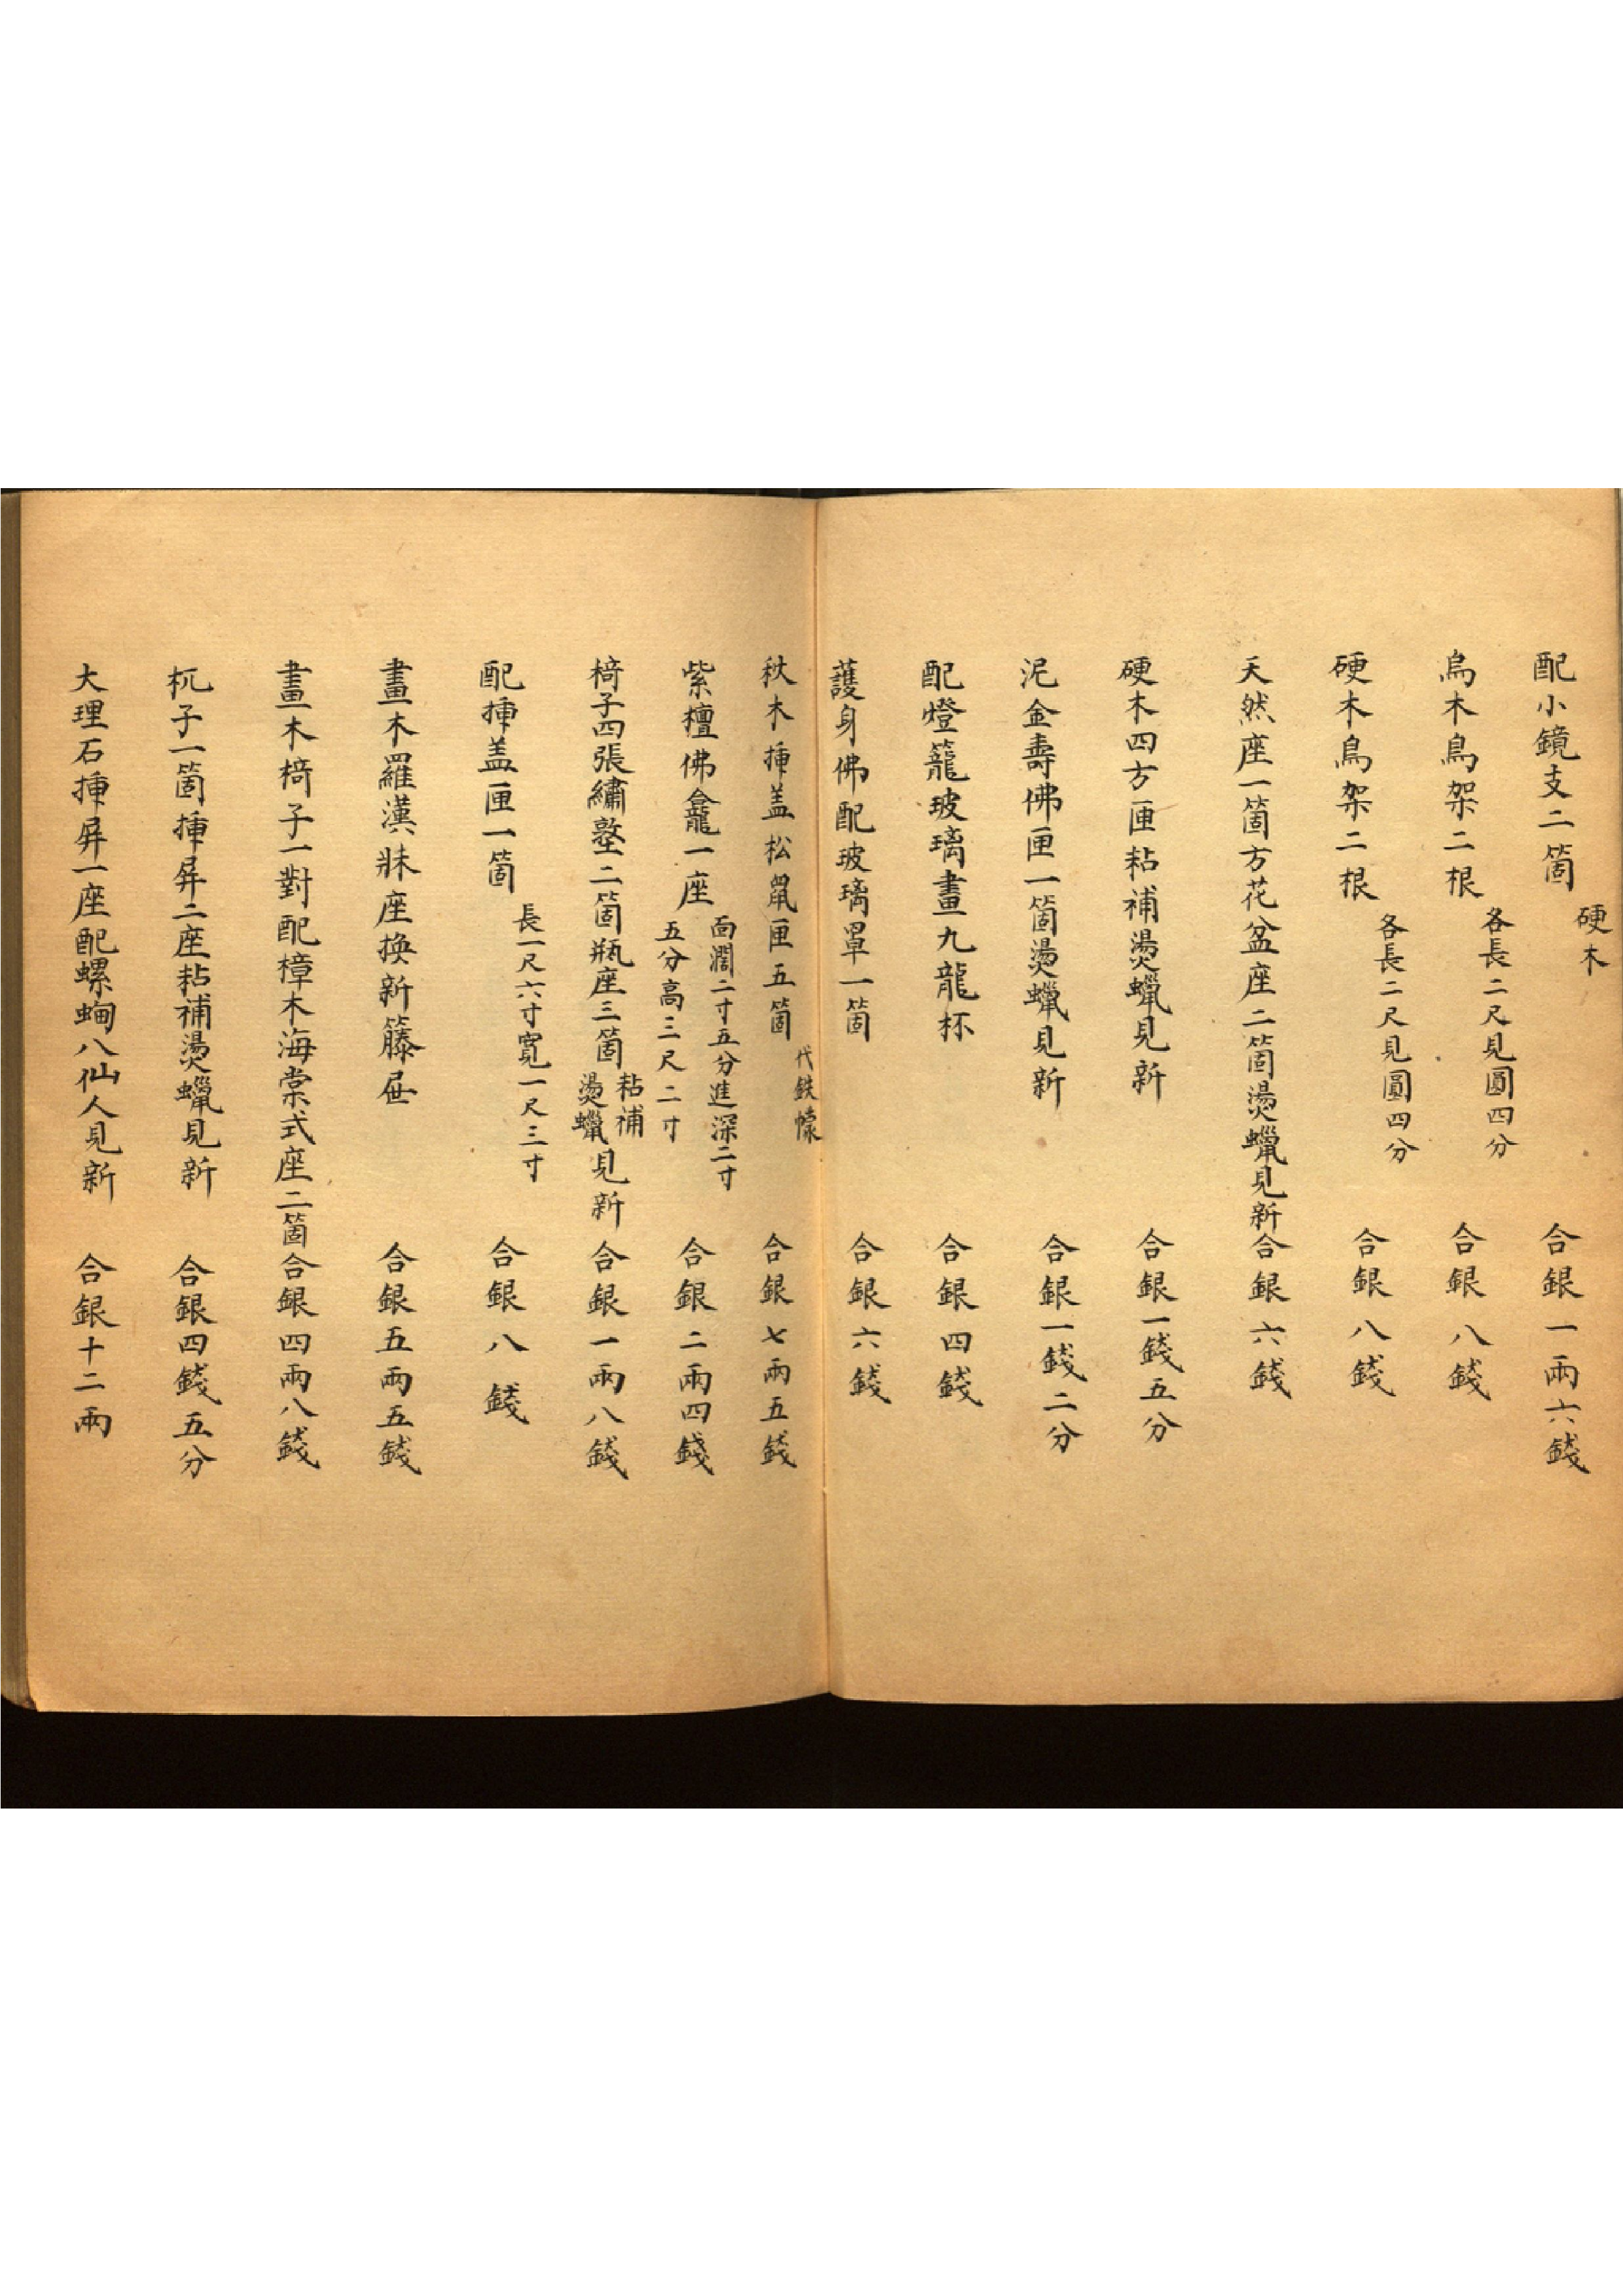 配小鏡支二箇 硬木 合銀一兩六錢
烏木鳥架二根 各長二尺見圓四分 合銀八錢
硬木鳥架二根 各長二尺見圓四分 合銀八錢
天然座一箇方花盆座二箇燙蠟見新合銀六錢
硬木四方匣粘補燙蠟見新 合銀一錢五分
泥金壽佛匣一箇燙蠟見新 合銀一錢二分
配燈籠玻璃畫九龍杯 合銀四錢
護身佛配玻璃罩一箇 合銀六錢
秋木揷盖松鼠匣五箇 代鉄幪 合銀七兩五錢
紫檀佛龕一座 面濶二寸五分進深二寸五分高三尺二寸 合銀二兩四錢
椅子四張繡墊二箇瓶座三箇粘補燙蠟見新 合銀一兩八錢
配揷盖匣一箇 長一尺六寸寬一尺三寸 合銀八錢
畫木羅漢牀座換新籐屉 合銀五兩五錢
畫木椅子一對配樟木海棠式座二箇合銀四兩八錢
杌子一箇揷屏二座粘補燙蠟見新 合銀四錢五分
大理石揷屏一座配螺蜔八仙人見新 合銀十二兩